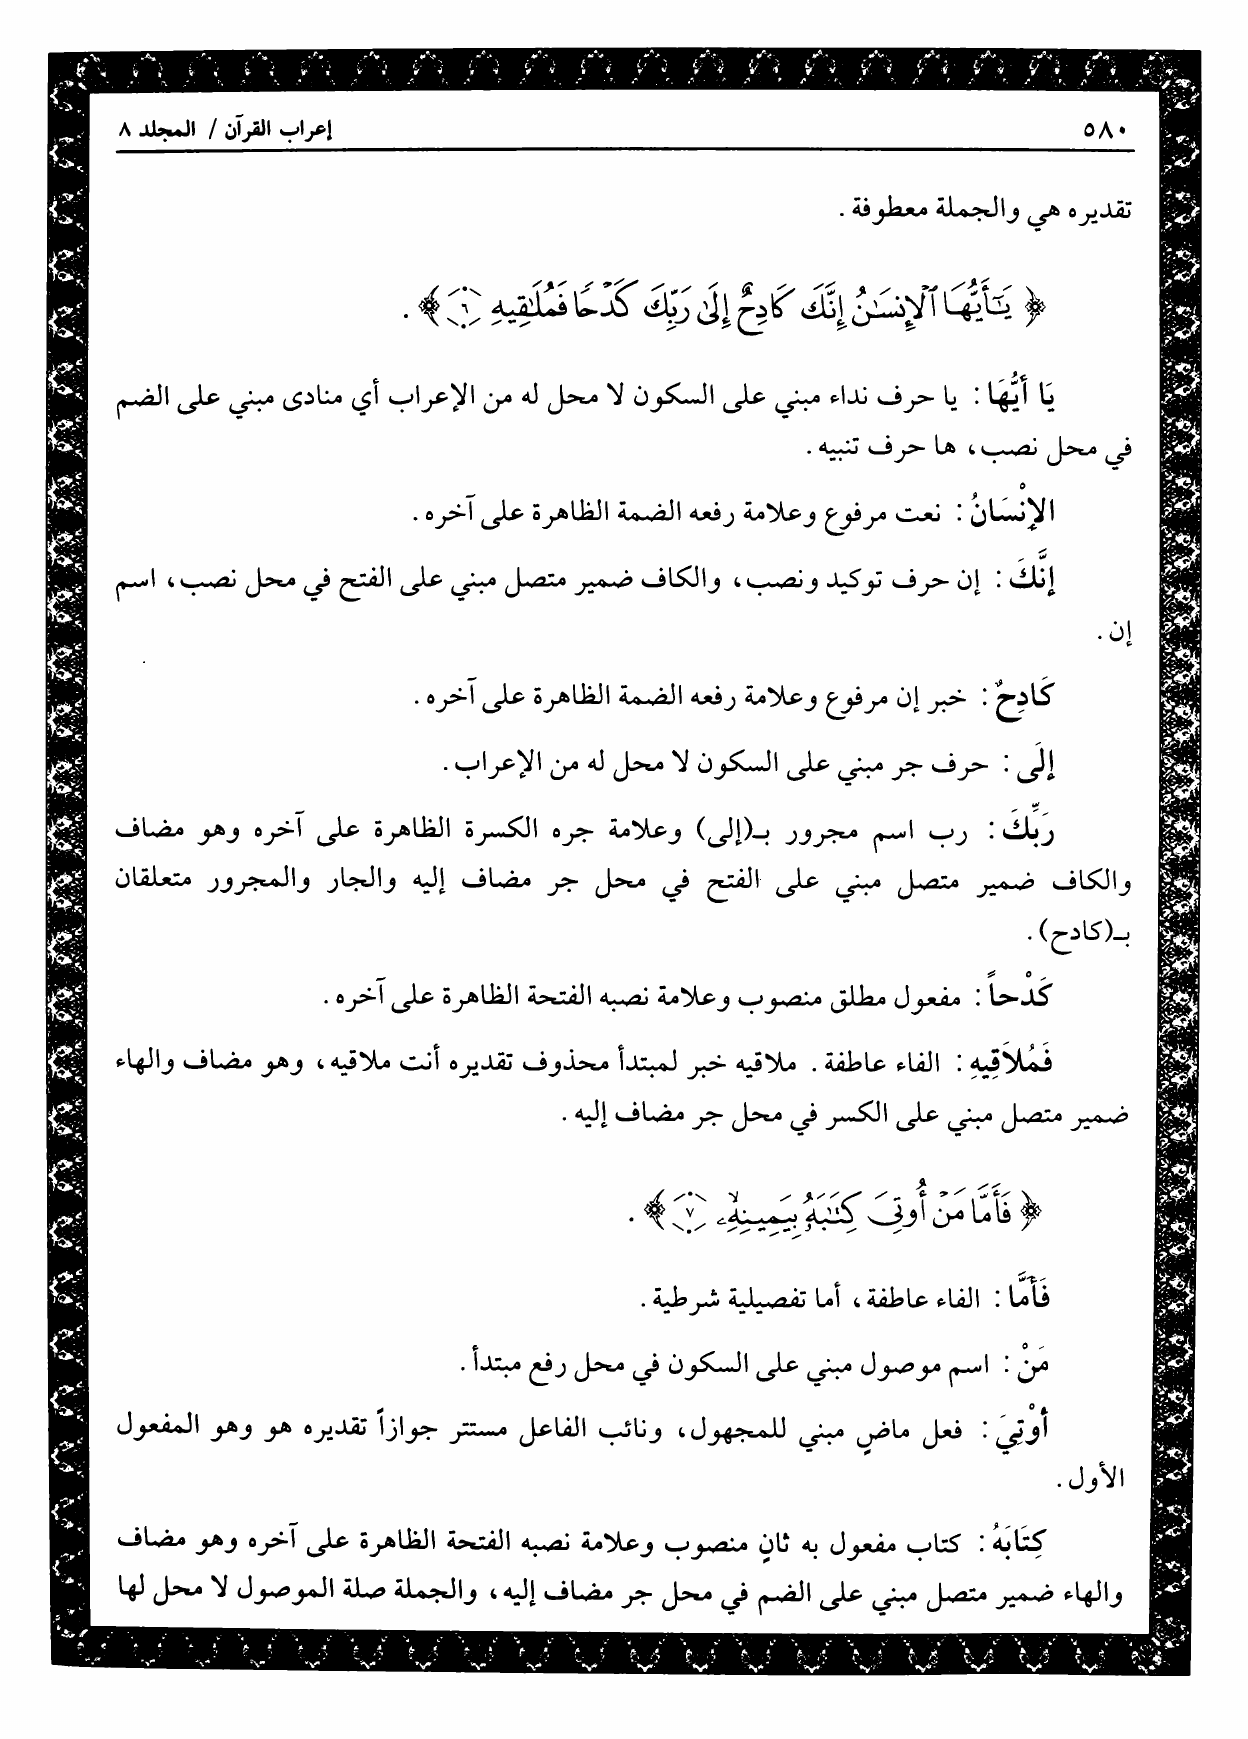 ٥٨٠
إعراب القرآن / المجلد ٨
تقديره هي والجملة معطوفة .
﴿ يَٰٓأَيُّهَا ٱلْإِنسَٰنُ إِنَّكَ كَادِحٌ إِلَىٰ رَبِّكَ كَدْحًا فَمُلَٰقِيهِ ٦ ﴾ .
يَا أَيُّهَا : يا حرف نداء مبني على السكون لا محل له من الإعراب أي منادى مبني على الضم
في محل نصب، ها حرف تنبيه .
الإنْسَانُ : نعت مرفوع وعلامة رفعه الضمة الظاهرة على آخره .
إنَّكَ : إن حرف توكيد ونصب، والكاف ضمير متصل مبني على الفتح في محل نصب، اسم
إن .
كَادِحٌ : خبر إن مرفوع وعلامة رفعه الضمة الظاهرة على آخره .
إلَى : حرف جر مبني على السكون لا محل له من الإعراب .
رَبِّكَ : رب اسم مجرور بـ(إلى) وعلامة جره الكسرة الظاهرة على آخره وهو مضاف
والكاف ضمير متصل مبني على الفتح في محل جر مضاف إليه والجار والمجرور متعلقان
بـ(كادح) .
كَدْحاً : مفعول مطلق منصوب وعلامة نصبه الفتحة الظاهرة على آخره .
فَمُلاَقِيهِ : الفاء عاطفة . ملاقيه خبر لمبتدأ محذوف تقديره أنت ملاقيه، وهو مضاف والهاء
ضمير متصل مبني على الكسر في محل جر مضاف إليه .
﴿ فَأَمَّا مَنْ أُوتِيَ كِتَٰبَهُۥ بِيَمِينِهِۦ ٧ ﴾ .
فَأَمَّا : الفاء عاطفة، أما تفصيلية شرطية .
مَنْ : اسم موصول مبني على السكون في محل رفع مبتدأ .
أُوْتِيَ : فعل ماضٍ مبني للمجهول، ونائب الفاعل مستتر جوازاً تقديره هو وهو المفعول
الأول .
كِتَابَهُ : كتاب مفعول به ثانٍ منصوب وعلامة نصبه الفتحة الظاهرة على آخره وهو مضاف
والهاء ضمير متصل مبني على الضم في محل جر مضاف إليه، والجملة صلة الموصول لا محل لها